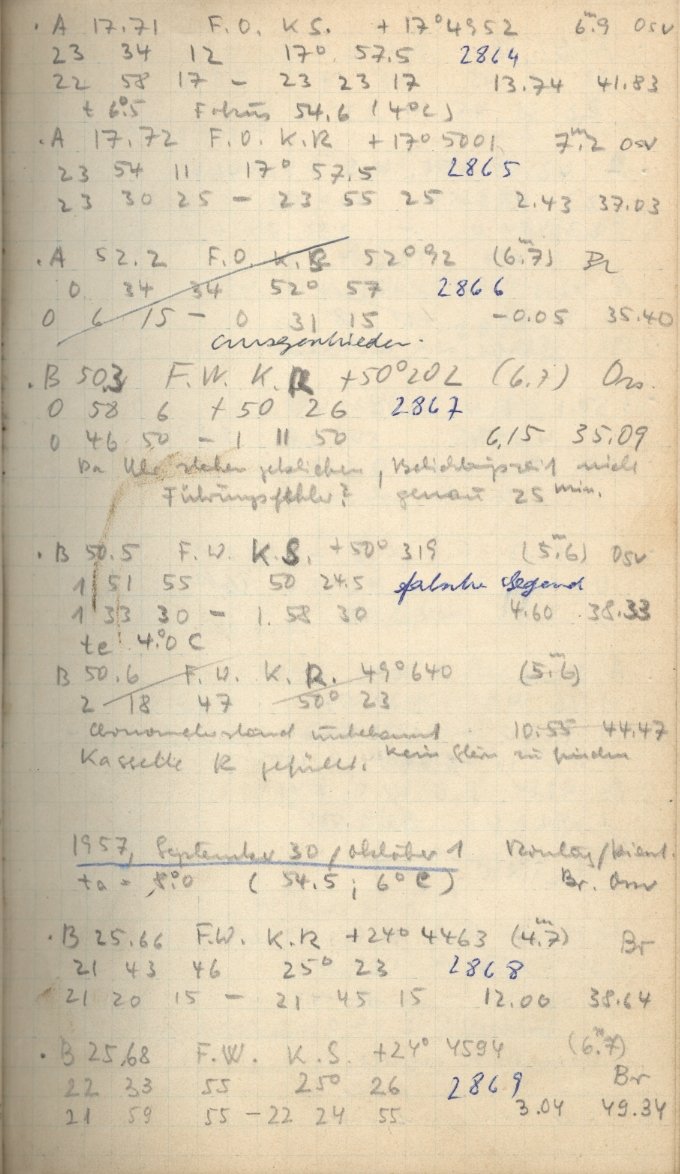 · A 17.71 F.O. K S. + 17° 4952 6ᵐ.9 Osv
23 34 12 17° 57.5 2864
22 58 17 - 23 23 17 13.74 41.83
t 6°.5 Fokus 54.6 (4°C)
· A 17.72 F.O. K.R + 17° 5001 7ᵐ.2 Osv
23 54 11 17° 57.5 2865
23 30 25 - 23 55 25 2.43 37.03
· A 52.2 F.O. K.S 52° 92 (6ᵐ.7) Br
0 34 34 52° 57 2866
0 6 15 - 0 31 15 -0.05 35.40
ausgeschieden.
· B 50.3 F.W. K.R +50° 202 (6.7)
0 58 6 +50 26 2867
0 46 50 - 1 11 50 6,15 35.09
Da Uhr stehen geblieben, Belichtungszeit nicht
Führungsfehler? genau 25 min.
· B 50.5 F.W. K.S. +50° 319 (5ᵐ.6) Osv
1 51 55 50 24.5 falsche Gegend
1 33 30 - 1. 58 30 4.60 38.33
te 4°.0 C
B 50.6 F.W. K.R. 49° 640 (5ᵐ.6)
2 18 47 50° 23
Chronometerstand unbekannt 10.55 44.47
Kassette R gefüllt. kein Stern zu finden
1957, September 30 / Oktober 1 Montag/Dienst.
ta = 8°.0 (54.5; 6° C) Br. Osv
· B 25.66 F.W. K.R +24° 4463 (4ᵐ.7) Br
21 43 46 25° 23 2868
21 20 15 - 21 45 15 12.00 38.64
· B 25.68 F.W. K.S. +24° 4594 (6ᵐ.7)
22 33 55 25° 26 2869 Br
21 59 55 - 22 24 55 3.04 49.34